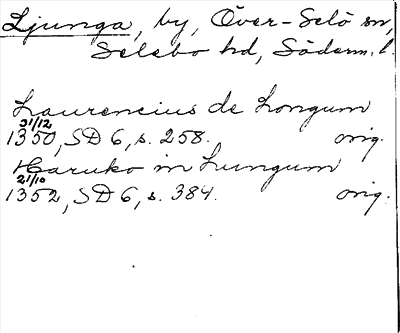 Ljunga, by, Över-Selö sn,
Selebo hd, Söderm. l.
Laurencius de Longum
31/12
1350, SD 6, s. 258. orig.
Haruko in Lungum
21/10
1352, SD 6, s. 384. orig.